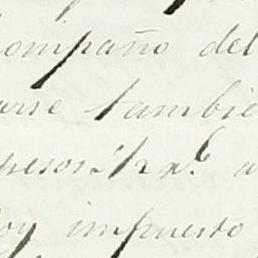 ompaño del
arse tambie
pesos
oy impuesto